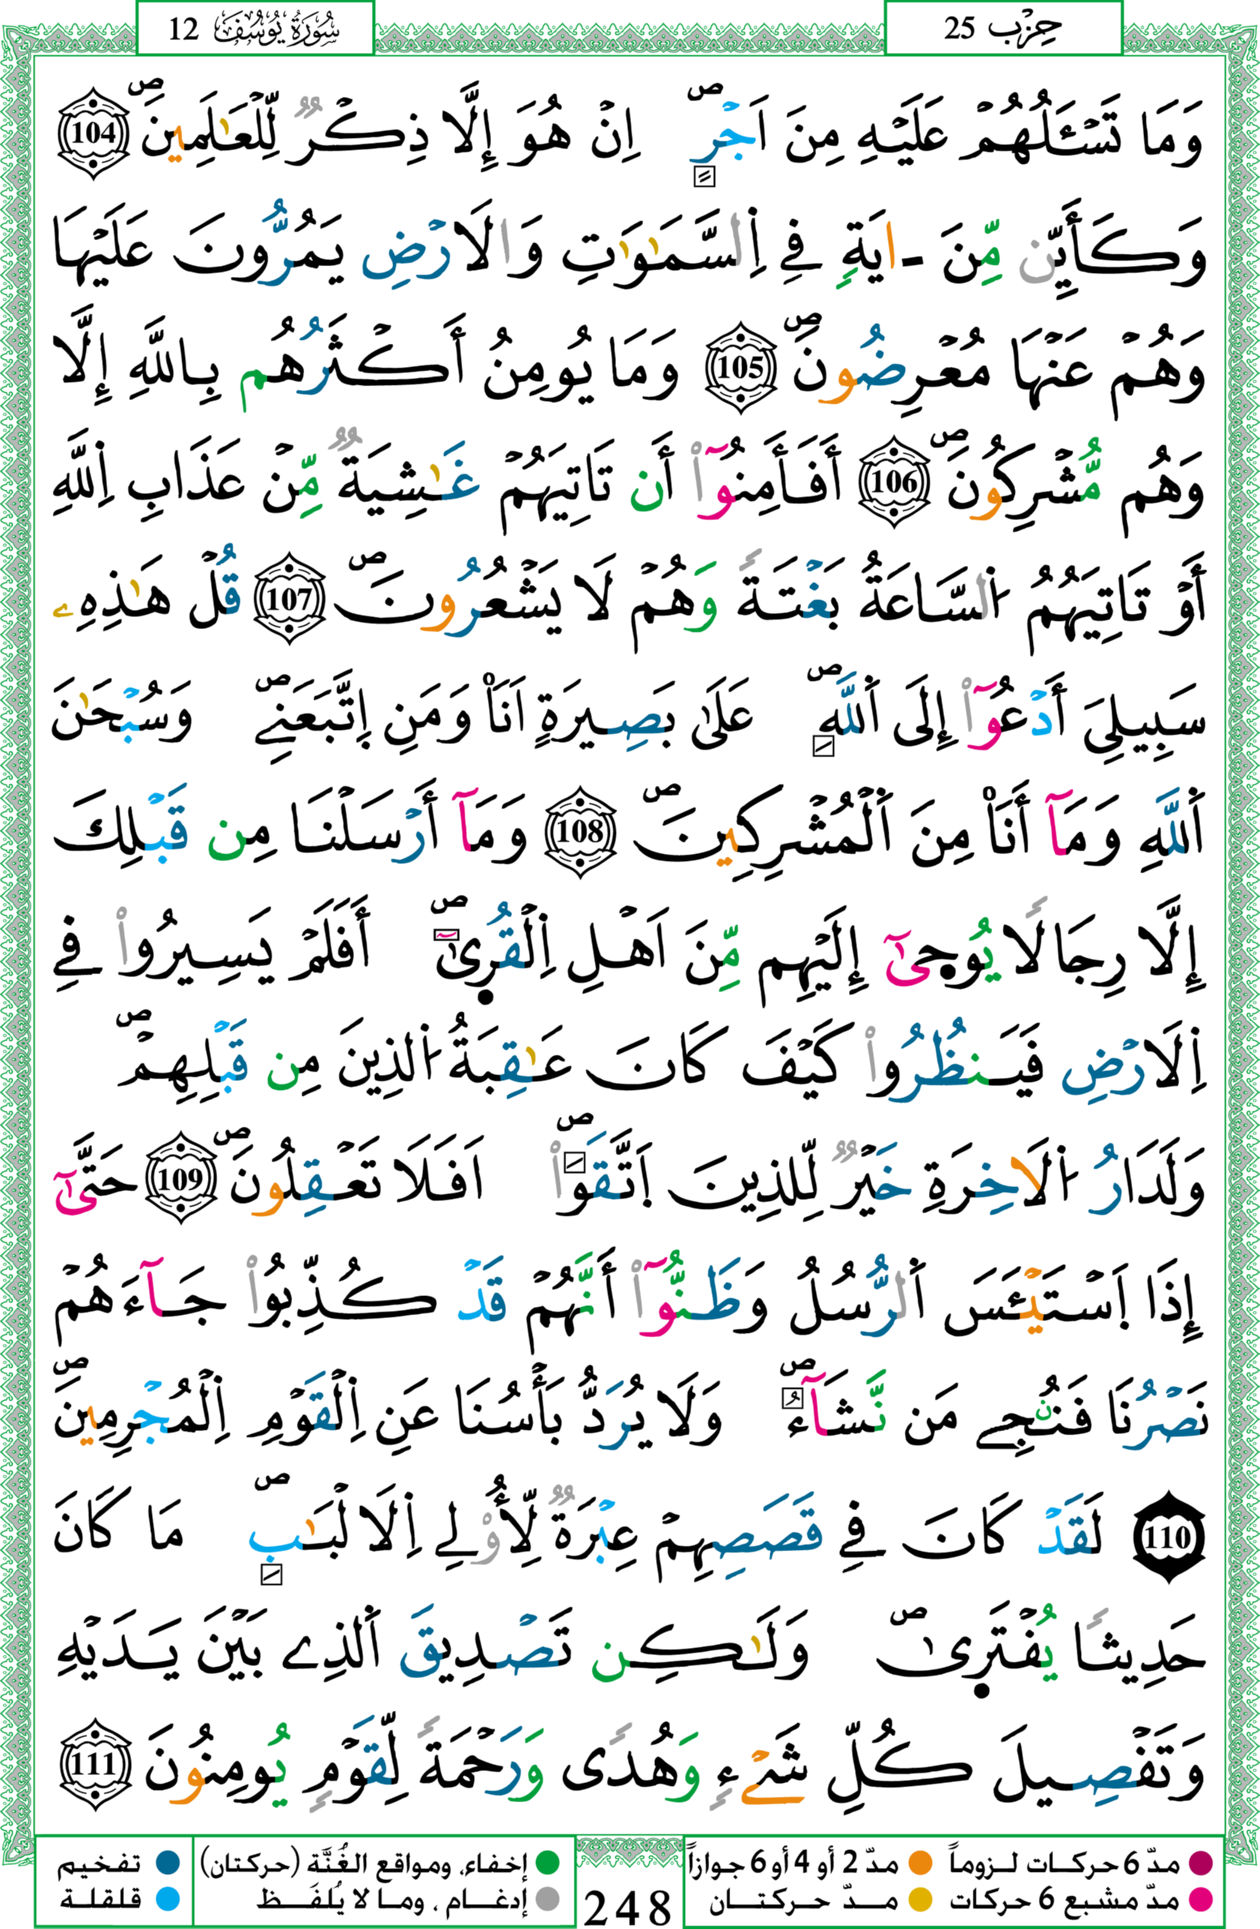 حِزْب 25
سُورَةُ يُوسُفَ 12
وَمَا تَسْـَٔلُهُمْ عَلَيْهِ مِنَ اَجْرٍۖ اِنْ هُوَ إِلَّا ذِكْرٌ لِّلْعَٰلَمِينَۖ 104
وَكَأَيِّن مِّنَ ـ اَيَةٍ فِے اِ۬لسَّمَٰوَٰتِ وَالَارْضِ يَمُرُّونَ عَلَيْهَا
وَهُمْ عَنْهَا مُعْرِضُونَۖ 105 وَمَا يُومِنُ أَكْثَرُهُم بِاللَّهِ إِلَّا
وَهُم مُّشْرِكُونَۖ 106 أَفَأَمِنُوٓاْ أَن تَاتِيَهُمْ غَٰشِيَةٌ مِّنْ عَذَابِ اِ۬للَّهِ
أَوْ تَاتِيَهُمُ اُ۬لسَّاعَةُ بَغْتَةً وَهُمْ لَا يَشْعُرُونَۖ 107 قُلْ هَٰذِهِۦ
سَبِيلِيَ أَدْعُوٓاْ إِلَى اَ۬للَّهِۖ عَلَىٰ بَصِيرَةٍ اَنَا۠ وَمَنِ اِ۪تَّبَعَنِےۖ وَسُبْحَٰنَ
اَ۬للَّهِ وَمَآ أَنَا۠ مِنَ اَ۬لْمُشْرِكِينَۖ 108 وَمَآ أَرْسَلْنَا مِن قَبْلِكَ
إِلَّا رِجَالًا يُوحَىٰٓ إِلَيْهِم مِّنَ اَهْلِ اِ۬لْقُرَىٰٓۖ أَفَلَمْ يَسِيرُواْ فِے
اِ۬لَارْضِ فَيَنظُرُواْ كَيْفَ كَانَ عَٰقِبَةُ اُ۬لذِينَ مِن قَبْلِهِمْۖ
وَلَدَارُ اُ۬لَاخِرَةِ خَيْرٌ لِّلذِينَ اَ۪تَّقَوَاْۖ اَفَلَا تَعْقِلُونَۖ 109 حَتَّىٰٓ
إِذَا اَ۪سْتَيْـَٔسَ اَ۬لرُّسُلُ وَظَنُّوٓاْ أَنَّهُمْ قَدْ كُذِّبُواْ جَآءَهُمْ
نَصْرُنَا فَنُنجِے مَن نَّشَآءُۖ وَلَا يُرَدُّ بَأْسُنَا عَنِ اِ۬لْقَوْمِ اِ۬لْمُجْرِمِينَۖ
110 لَقَدْ كَانَ فِے قَصَصِهِمْ عِبْرَةٌ لِّأُوْلِے اِ۬لَالْبَٰبِۖ مَا كَانَ
حَدِيثًا يُفْتَرَىٰۖ وَلَٰكِن تَصْدِيقَ اَ۬لذِے بَيْنَ يَدَيْهِ
وَتَفْصِيلَ كُلِّ شَےْءٍ وَهُدًى وَرَحْمَةً لِّقَوْمٍ يُومِنُونَ 111
مدّ 6 حركات لـزوماً مدّ 2 أو 4 أو 6 جوازاً
مدّ مشبع 6 حركات مـدّ حركتـان
248
إخفاء، ومواقع الغُنَّة (حركتان) تفخيم
إدغـام ، ومـا لا يُلفَـظ قلقلة